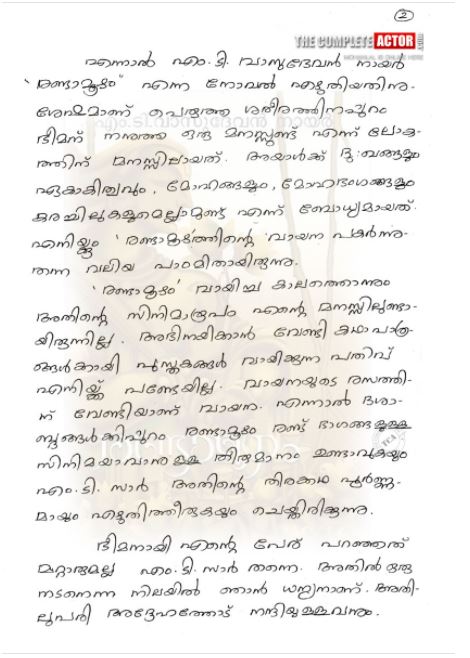 2
THE COMPLETE ACTOR
എന്നാൽ എം.ടി. വാസുദേവൻ നായർ
'രണ്ടാമൂഴം' എന്ന നോവൽ എഴുതിയതിനു-
ശേഷമാണ് പെരുത്ത ശരീരത്തിനപ്പുറം
എം.ടി.വാസുദേവൻ നായർ
ഭീമന് നനുത്ത ഒരു മനസ്സുണ്ട് എന്ന് ലോക-
ത്തിന് മനസ്സിലായത്. അയാൾക്ക് ദു:ഖങ്ങളും
ഏകാകിത്വവും, മോഹങ്ങളും, മോഹഭംഗങ്ങളും
കരച്ചിലുകളുമെല്ലാമുണ്ട് എന്ന് ബോധ്യമായത്.
എനിയ്ക്കും 'രണ്ടാമൂഴ'ത്തിന്റെ വായന പകർന്നു-
തന്ന വലിയ പാഠമിതായിരുന്നു.
'രണ്ടാമൂഴം' വായിച്ച കാലത്തൊന്നും
അതിന്റെ സിനിമാരൂപം എന്റെ മനസ്സിലുണ്ടാ-
യിരുന്നില്ല. അഭിനയിക്കാൻ വേണ്ടി കഥാപാത്ര-
ങ്ങൾക്കായി പുസ്തകങ്ങൾ വായിക്കുന്ന പതിവ്
എനിയ്ക്ക് പണ്ടേയില്ല. വായനയുടെ രസത്തി-
ന് വേണ്ടിയാണ് വായന. എന്നാൽ ദശാ-
ബ്ദങ്ങൾക്കിപ്പുറം രണ്ടാമൂഴം രണ്ട് ഭാഗങ്ങളുള്ള
സിനിമയാവാനുള്ള തീരുമാനം ഉണ്ടാവുകയും
എം.ടി. സാർ അതിന്റെ തിരക്കഥ പൂർണ്ണ-
മായും എഴുതിത്തീരുകയും ചെയ്തിരിക്കുന്നു.
ഭീമനായി എന്റെ പേര് പറഞ്ഞത്
മറ്റാരുമല്ല എം.ടി. സാർ തന്നെ. അതിൽ ഒരു
നടനെന്ന നിലയിൽ ഞാൻ ധന്യനാണ്. അതി-
ലുപരി അദ്ദേഹത്തോട് നന്ദിയുള്ളവനും.